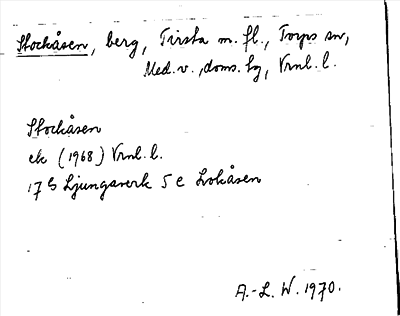 Stockåsen, berg, Tirsta m. fl., Torps sn,
Med. v., doms. hg, Vrnl. l.
Stockåsen
ek (1968) Vrnl. l.
17 G Ljungaverk 5 c Lokåsen
A.-L. W. 1970.